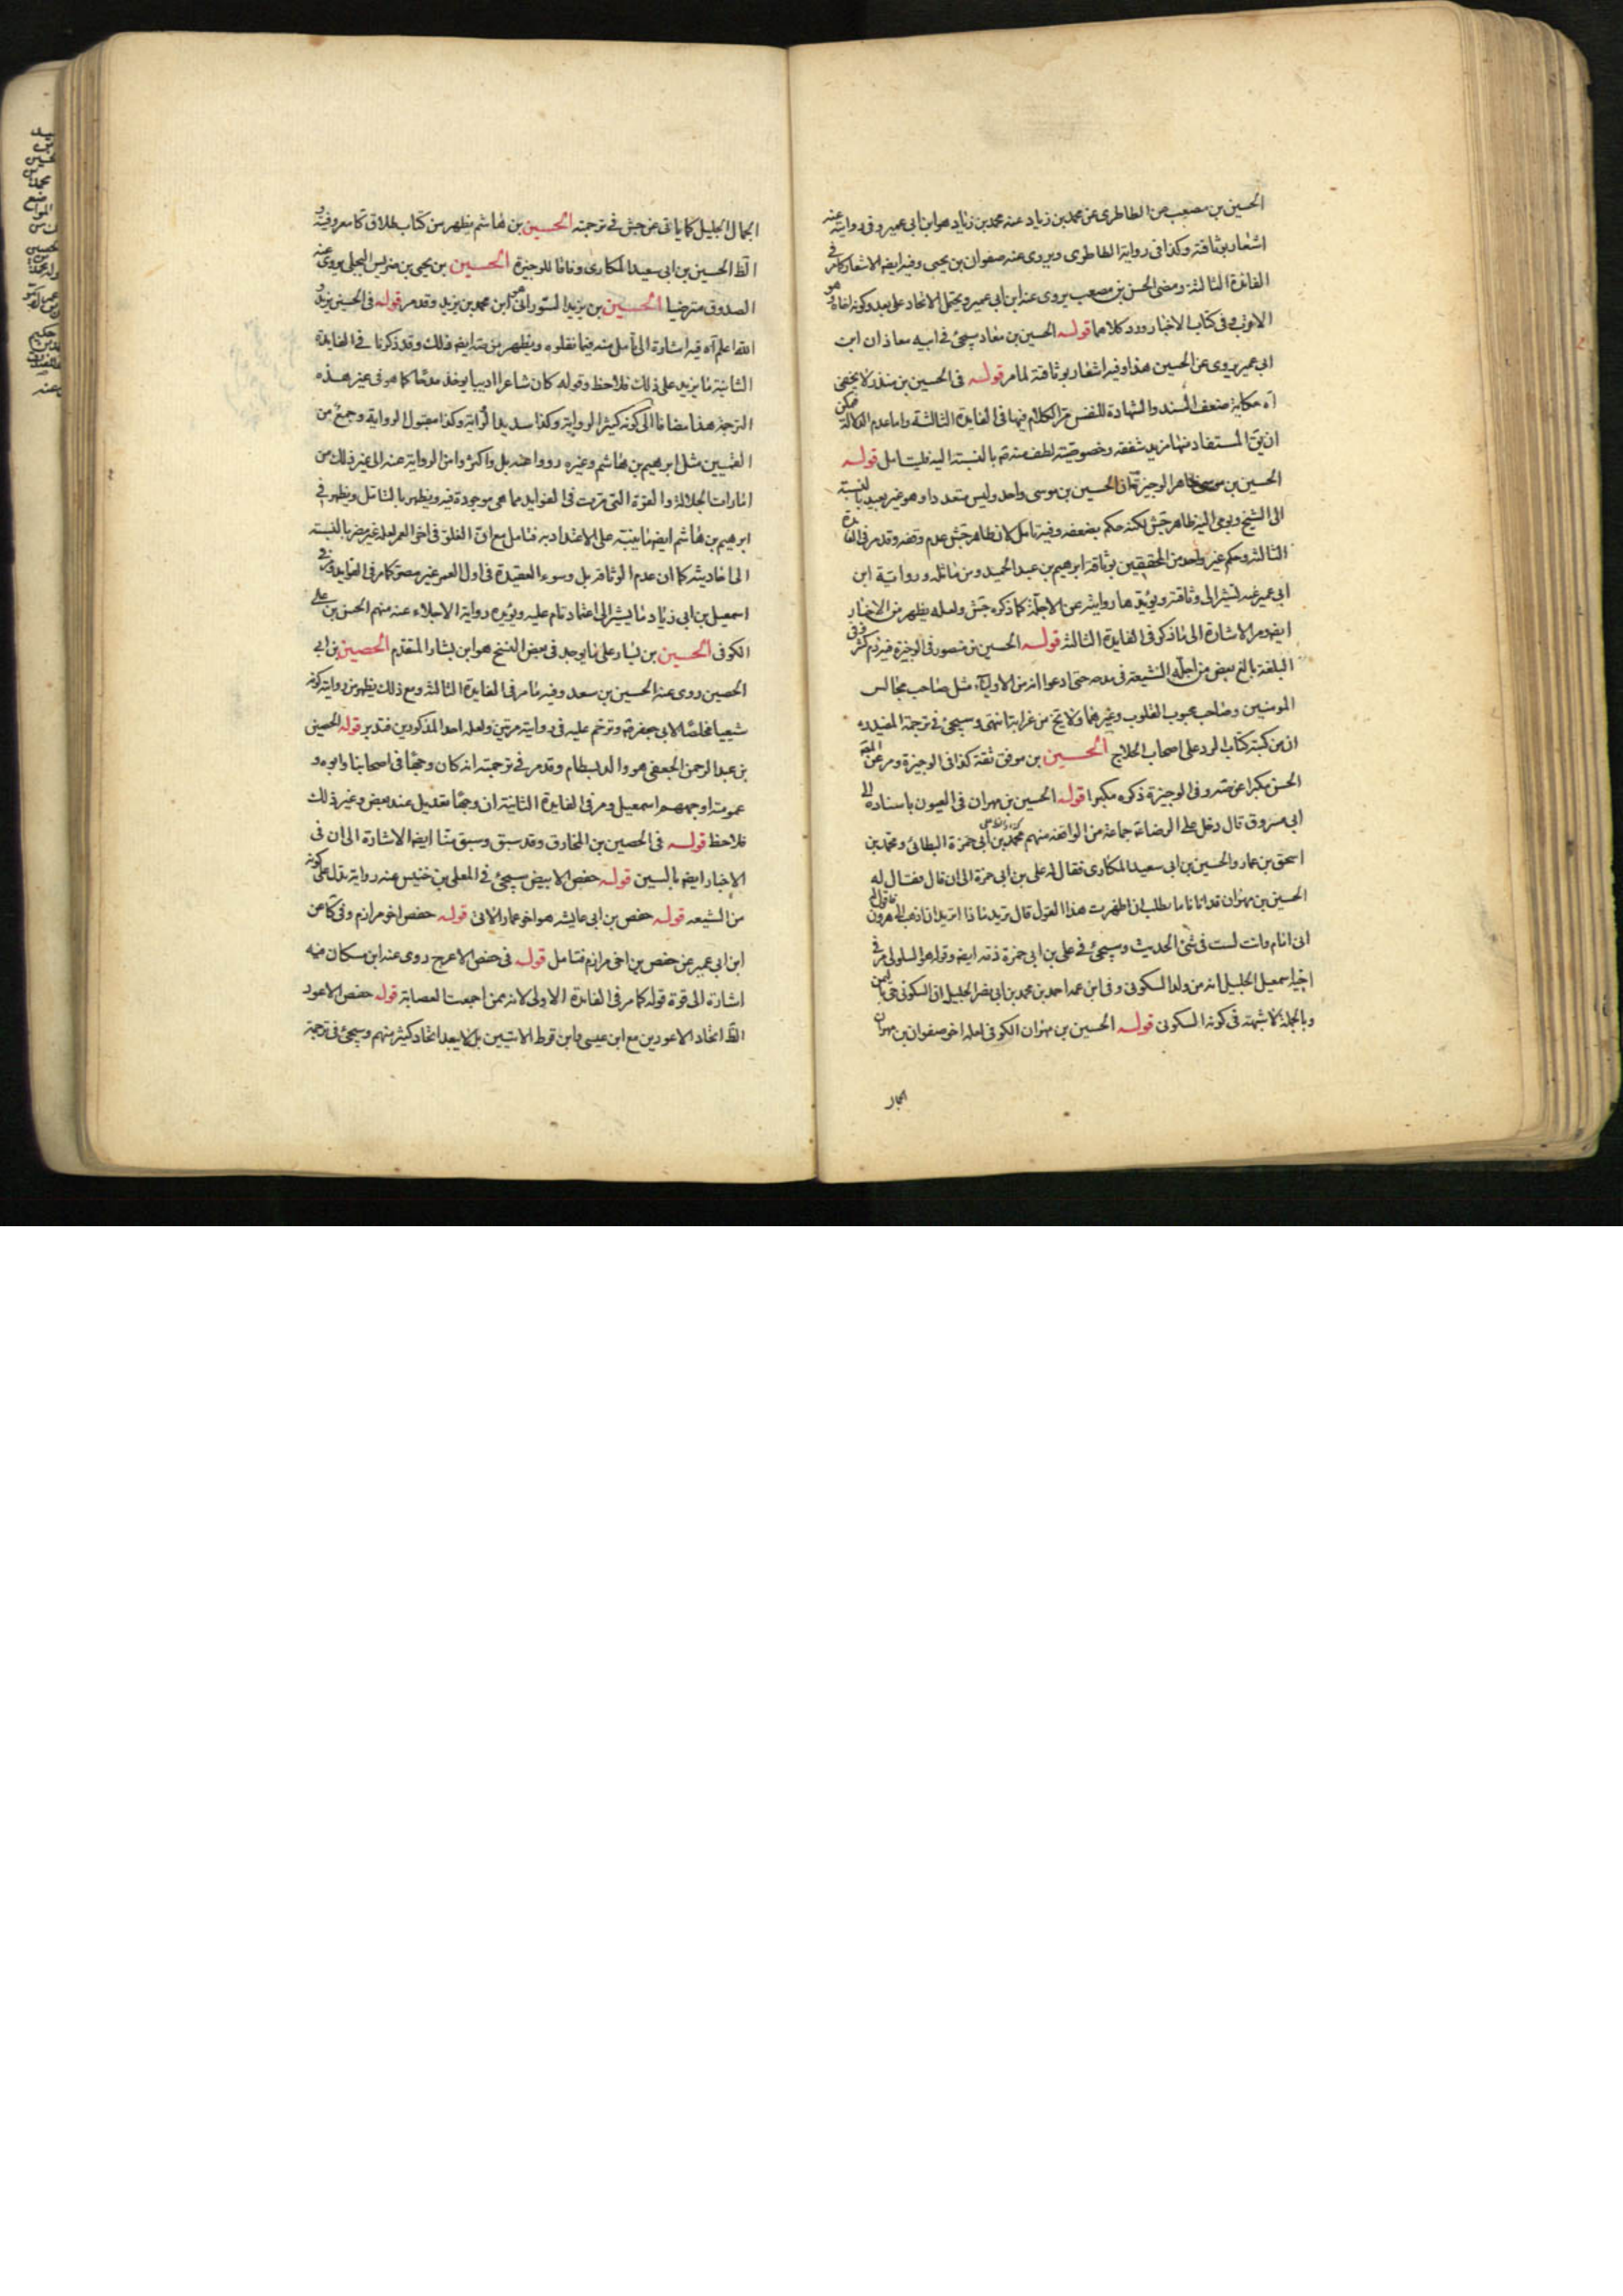 الحسين بن مصعب عن الطاطرى عن محمد بن زياد عنه محمد بن زياد هو ابن ابى عمير وفى روايته عنه
اشعار بوثاقته وكذا فى رواية الطاطرى ويروى عنه صفوان بن يحيى وفيه ايضا الاشعار كما مر فى
الفائدة الثالثة ومضى الحسن بن مصعب يروى عنه ابن ابى عمير ويحتمل الاتحاد على بعد وكونه اخاه هو
الاقرب وفى كتاب الاخبار ورد كلاهما قوله الحسين بن معاذ سيجئ فى ابيه معاذ ان ابن
ابى عمير يروى عن الحسين هذا وفيه اشعار بوثاقته لما مر قوله فى الحسين بن منذر لا يخفى
اه حكاية ضعف السند والشهادة للنفس مر الكلام فيها فى الفايدة الثالثة واما عدم الدلالة فيمكن
ان يق المستفاد منها مزيد شفقه وخصوصية لطف منه ع بالنسبة اليه فليتامل قوله
الحسين بن موسى ظاهر الوجيزة ان الحسين بن موسى واحد وليس متعددا وهو غير بعيد بالنسبة
الى الشيخ ويومى اليه ظاهر جش لكنه حكم بضعفه وفيه تامل لان ظاهر جش عدم وقفه وقد مر فى الفايدة
الثالثة وحكم غير واحد من المحققين بوثاقة ابرهيم بن عبد الحميد ومن ماثله ورواية ابن
ابى عمير عنه تشير الى وثاقته ويؤيدها روايته عن الاجلة كما ذكره جش ولعله يظهر من الاخبار
ايضا ومر الاشارة الى ما ذكر فى الفايدة الثالثة قوله الحسين بن منصور فى الوجيزة فيه ذم كثير وفى
البلغة بالغ بعض من اجلة الشيعة فى مدحه حتى ادعوا انه من الاولياء مثل صاحب مجالس
المومنين وصاحب محبوب القلوب وغيرهما ولا يخ من غرابة انتهى وسيجئ فى ترجمة المفيد ره
ان من كتبه كتاب الرد على اصحاب الحلاج الحسين بن موفق ثقة كذا فى الوجيزة ومر عن
الحسن مكبرا عن صه وفى الوجيزة ذكره مكبرا قوله الحسين بن مهران فى العيون باسناده الى
ابى مسروق قال دخل على الرضا ع جماعة من الواقفة منهم محمد بن ابى حمزة البطائنى ومحمد بن
اسحق بن عمار والحسين بن ابى سعيد المكارى فقال له على بن ابى حمزة الى ان قال فقال له
الحسين بن مهران قد اتانا ما نطلب ان اظهرت هذا القول قال تريد ماذا اتريد ان اذهب الى هرون فاقول له
انى امام وانت لست فى شئ الحديث وسيجئ فى على بن ابى حمزة ذمه ايضا وقوله هو السلولى مر فى
اخيه اسمعيل الجليل انه من ولد السكونى وفى ابن عمه احمد بن محمد بن ابى نصر الجليل ان السكونى حى باليمن
وبالجملة لا شبهة فى كونه السكونى قوله الحسين بن مهران الكوفى لعله اخو صفوان بن مهران
الجمال
الجمال الجليل كما ياتى عن جش فى ترجمته الحسين بن هاشم يظهر من كتاب طلاق كا معروفيته و
الظ الحسين بن ابى سعيد المكارى وفاقا للوجيزة الحسين بن يحيى بن ضريس البجلى يروى عنه
الصدوق مترضيا الحسين بن يزيد السورانى هو ابن محمد بن يزيد وقد مر قوله فى الحسين بن يزيد و
الله اعلم اه فيه اشارة الى تامل منه فيما نقلوه ويظهر من صه ايضا ذلك وقد ذكرنا فى الفايدة
الثانية ما يزيد على ذلك فلاحظ وقوله كان شاعرا اديبا يوخذ مدحا كما هو فى غير هذه
الترجمة هذا مضافا الى كونه كثير الرواية وكذا سديد الرواية وكذا مقبول الرواية وجمع من
القميين مثل ابرهيم بن هاشم وغيره رووا عنه بل واكثروا من الرواية عنه الى غير ذلك من
امارات الجلالة والقوة التى مرت فى الفوايد مما هى موجودة فيه ويظهر بالتامل ويظهر فى
ابرهيم بن هاشم ايضا ما ينبه على الاعتداد به فتامل مع ان الغلو فى اخر العمر لعله غير مضر بالنسبة
الى احاديثه كما ان عدم الوثاقة بل وسوء العقيدة فى اول العمر غير مضر كما مر فى الفوايد ومر فى
اسمعيل بن ابى زياد ما يشير الى اعتماد تام عليه ويؤيده رواية الاجلاء عنه منهم الحسن بن على
الكوفى الحسين بن يسار على ما يوجد فى بعض النسخ هو ابن بشار المتقدم الحصين بن ابى
الحصين روى عنه الحسين بن سعيد وفيه ما مر فى الفايدة الثالثة ومع ذلك يظهر من روايته كونه
شيعيا مخلصا لابى جعفر ع وترحم عليه فى رواية مرتين ولعله احد المذكورين فتدبر قوله الحصين
بن عبد الرحمن الجعفى هو والد بسطام وقد مر فى ترجمته انه كان وجها فى اصحابنا وابوه و
عمومته اوجههم اسمعيل ومر فى الفايدة الثانية ان وجها تعديل عند بعض وغير ذلك
فلاحظ قوله فى الحصين بن المخارق وقد سبق وسبق منا ايضا الاشارة الى ان فى
الاخبار ايضا بالسين قوله حفص الابيض سيجئ فى المعلى بن خنيس عنه رواية تدل على كونه
من الشيعه قوله حفص بن ابى عايشه هو اخو عمار الاتى قوله حفص اخو مرازم وفى كا عن
ابن ابى عمير عن حفص بن اخى مرازم فتامل قوله فى حفص الاعرج روى عنه ابن مسكان فيه
اشارة الى قوة قوله كما مر فى الفايدة الاولى لانه ممن اجمعت العصابة قوله حفص الاعور
الظ اتحاد الاعورين مع ابن عيسى وابن قرط الاتيين بل لا يبعد اتحاد كثير منهم وسيجئ فى ترجمة